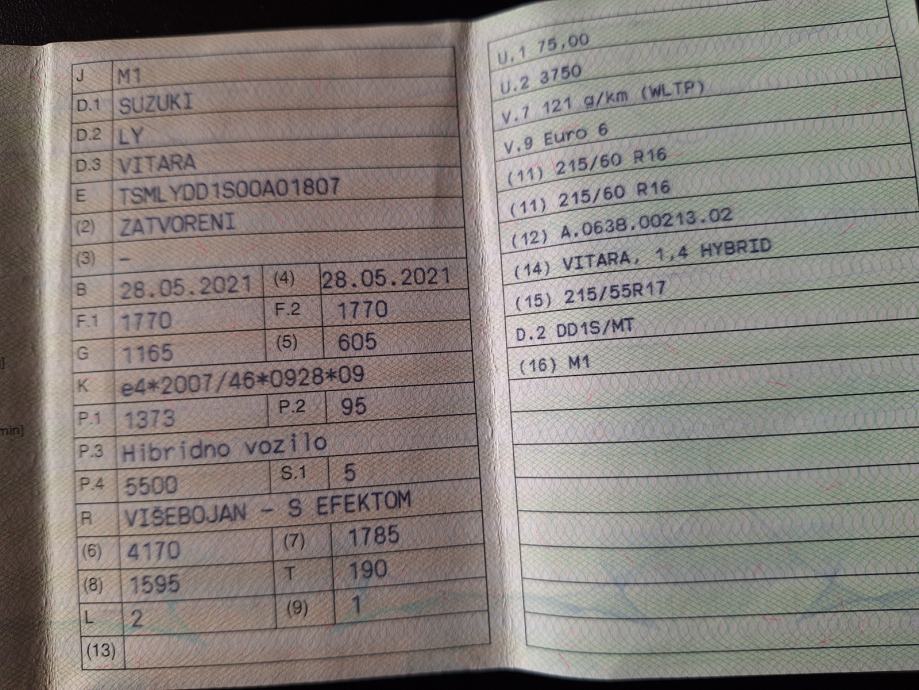 J M1
D.1 SUZUKI
D.2 LY
D.3 VITARA
E TSMLYDD1S00A01807
(2) ZATVORENI
(3) –
B 28.05.2021 (4) 28.05.2021
F.1 1770 F.2 1770
G 1165 (5) 605
K e4*2007/46*0928*09
P.1 1373 P.2 95
P.3 Hibridno vozilo
P.4 5500 S.1 5
R VIŠEBOJAN - S EFEKTOM
(6) 4170 (7) 1785
(8) 1595 T 190
L 2 (9) 1
(13)
U.1 75,00
U.2 3750
V.7 121 g/km (WLTP)
V.9 Euro 6
(11) 215/60 R16
(11) 215/60 R16
(12) A.0638.00213.02
(14) VITARA, 1,4 HYBRID
(15) 215/55R17
D.2 DD1S/MT
(16) M1
min]